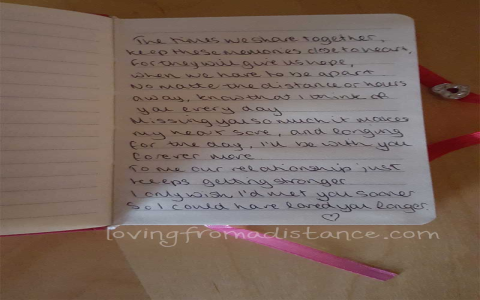 The times we share together,
keep these memories close to heart,
For they will give us hope,
when we have to be apart
No matte the distance or hours
away, know that I think of
you every day
Missing you so much it makes
my heart sore, and longing
for the day, I'll be with you
forever more
To me our relationship just
keeps getting stronger
I only wish I'd met you sooner
So I could have loved you longer.
lovingfromadistance.com